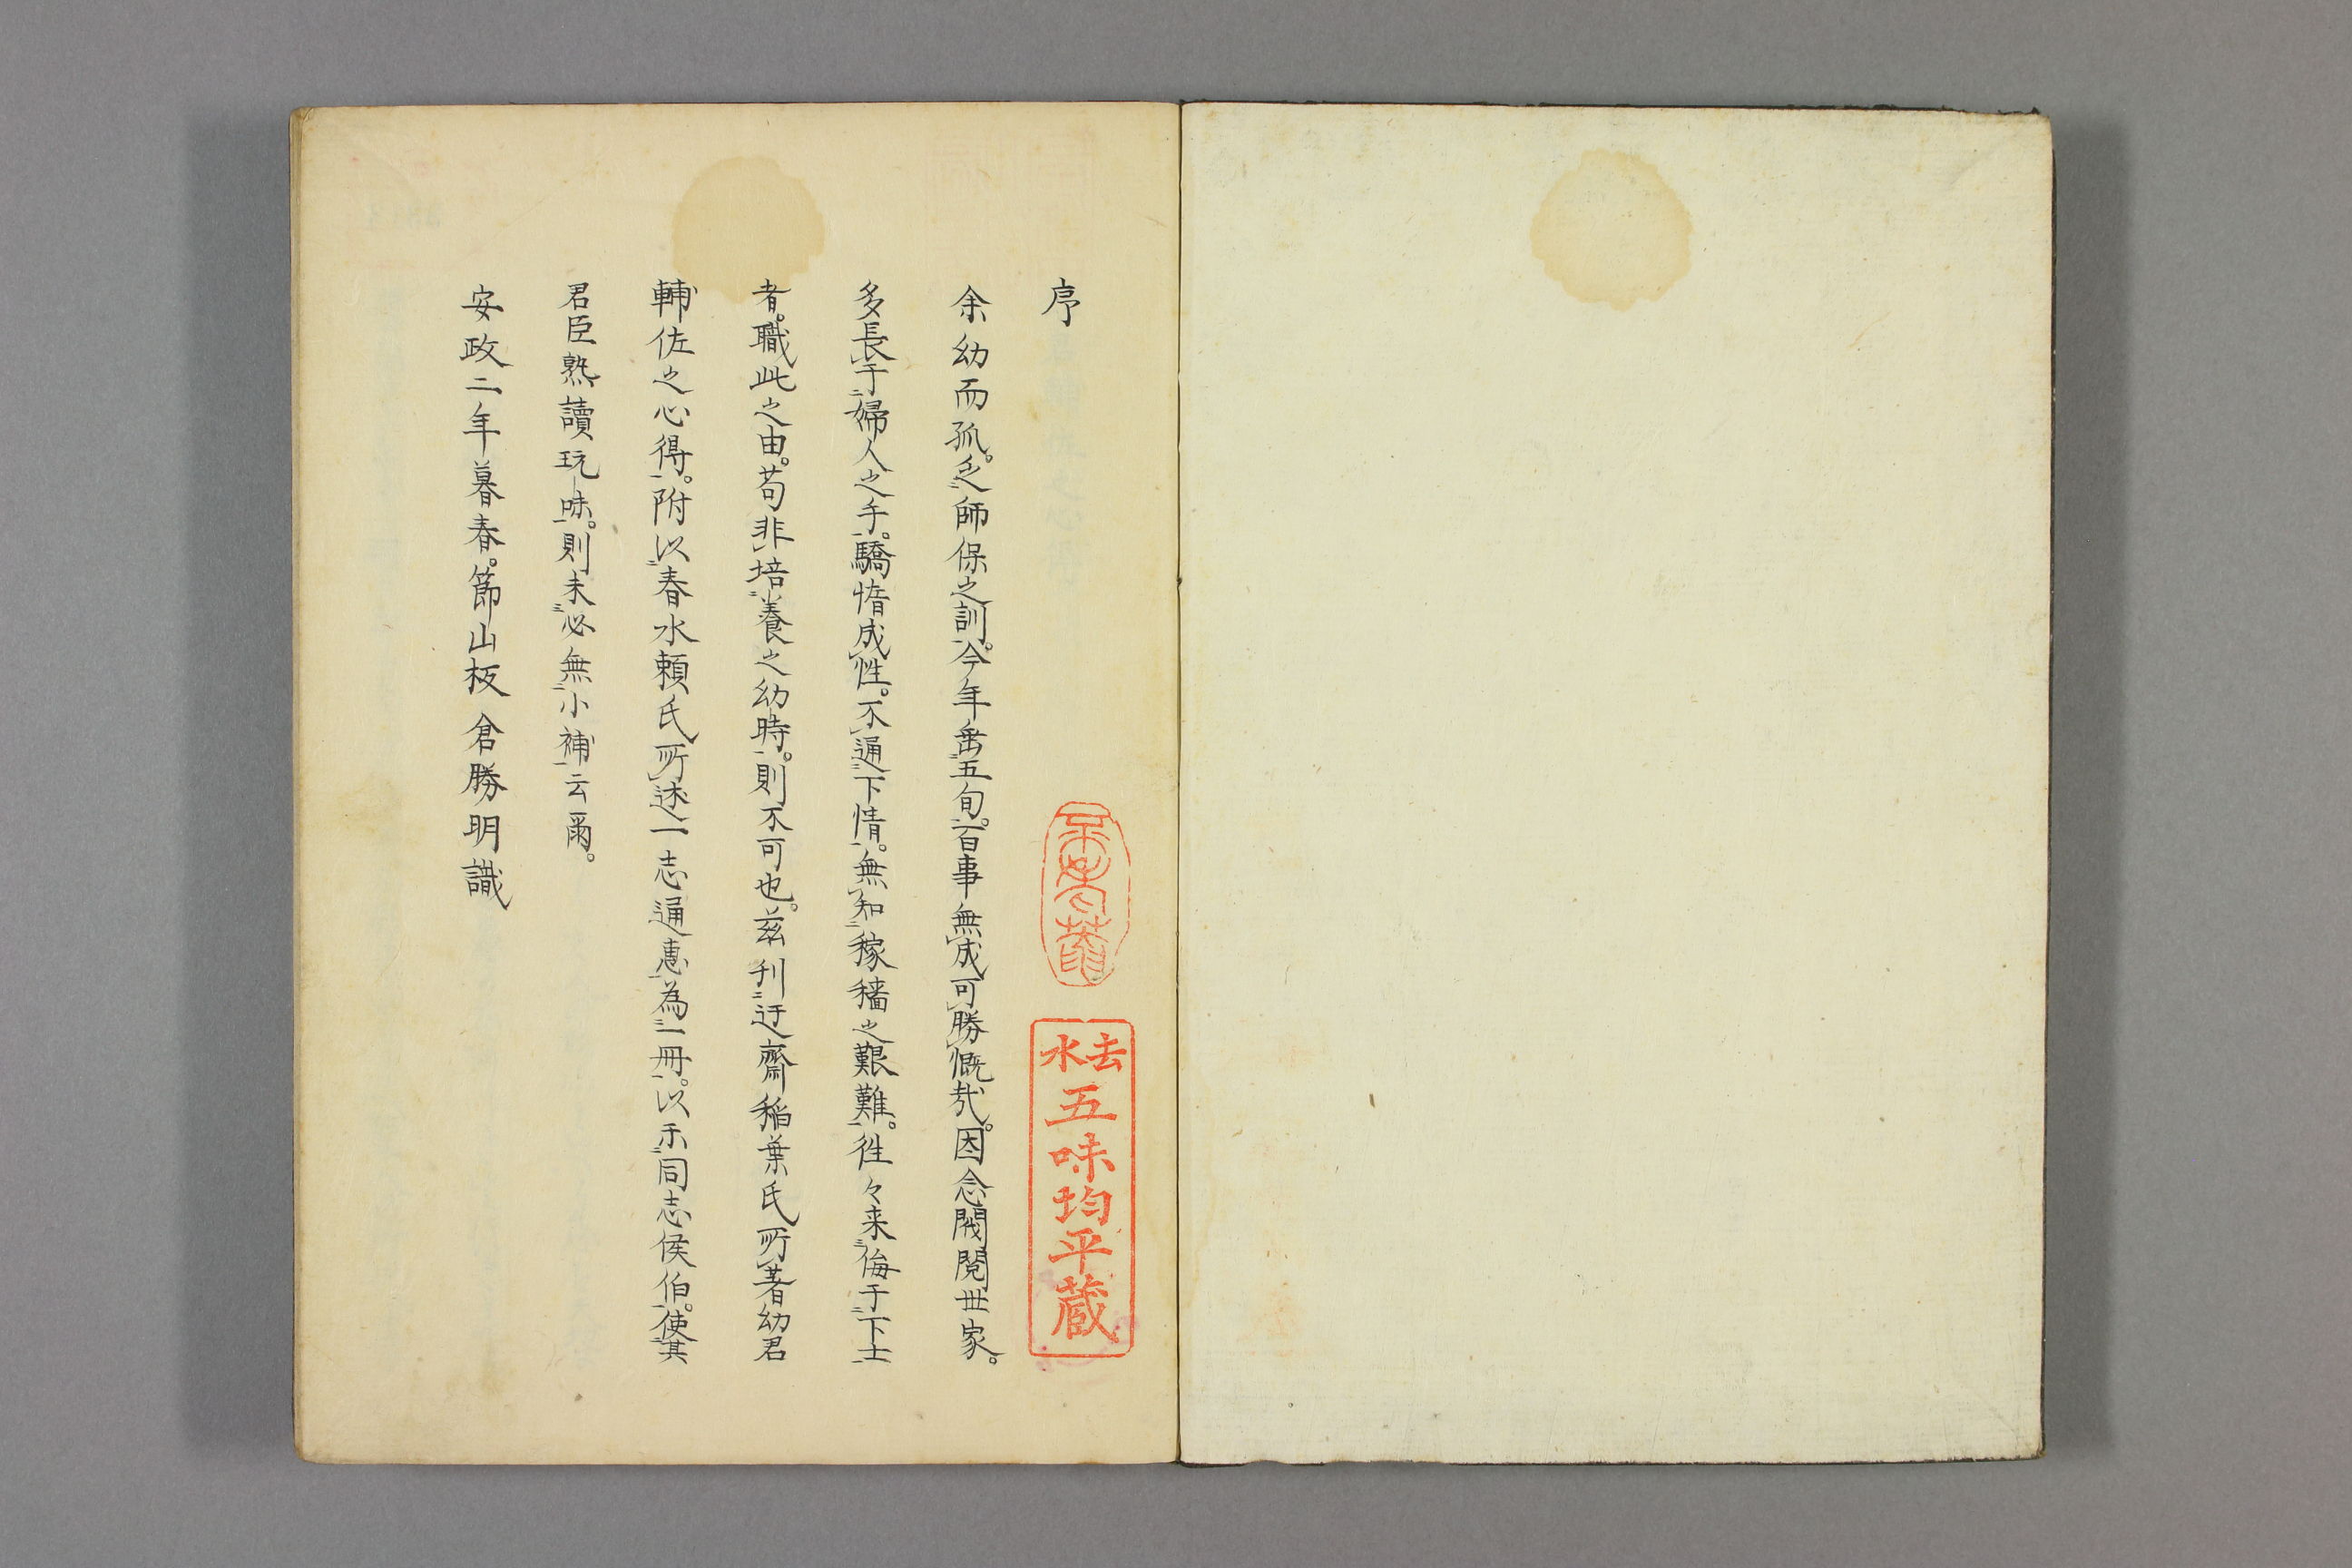 序
余幼而孤。乏師保之訓。今年垂五旬。百事無成可勝慨哉。因念閥閲世家。
多長于婦人之手。驕惰成性。不通下情。無知稼穡之艱難。徃々来侮于下士
者。職此之由。苟非培養之幼時。則不可也。茲刊迂齋稲葉氏所著幼君
輔佐之心得。附以春水頼氏所述一志通惠為一冊。以示同志侯伯。使其
君臣熟讀玩味。則未必無小補云爾。
安政二年暮春。節山板倉勝明識
去水
五味均平蔵